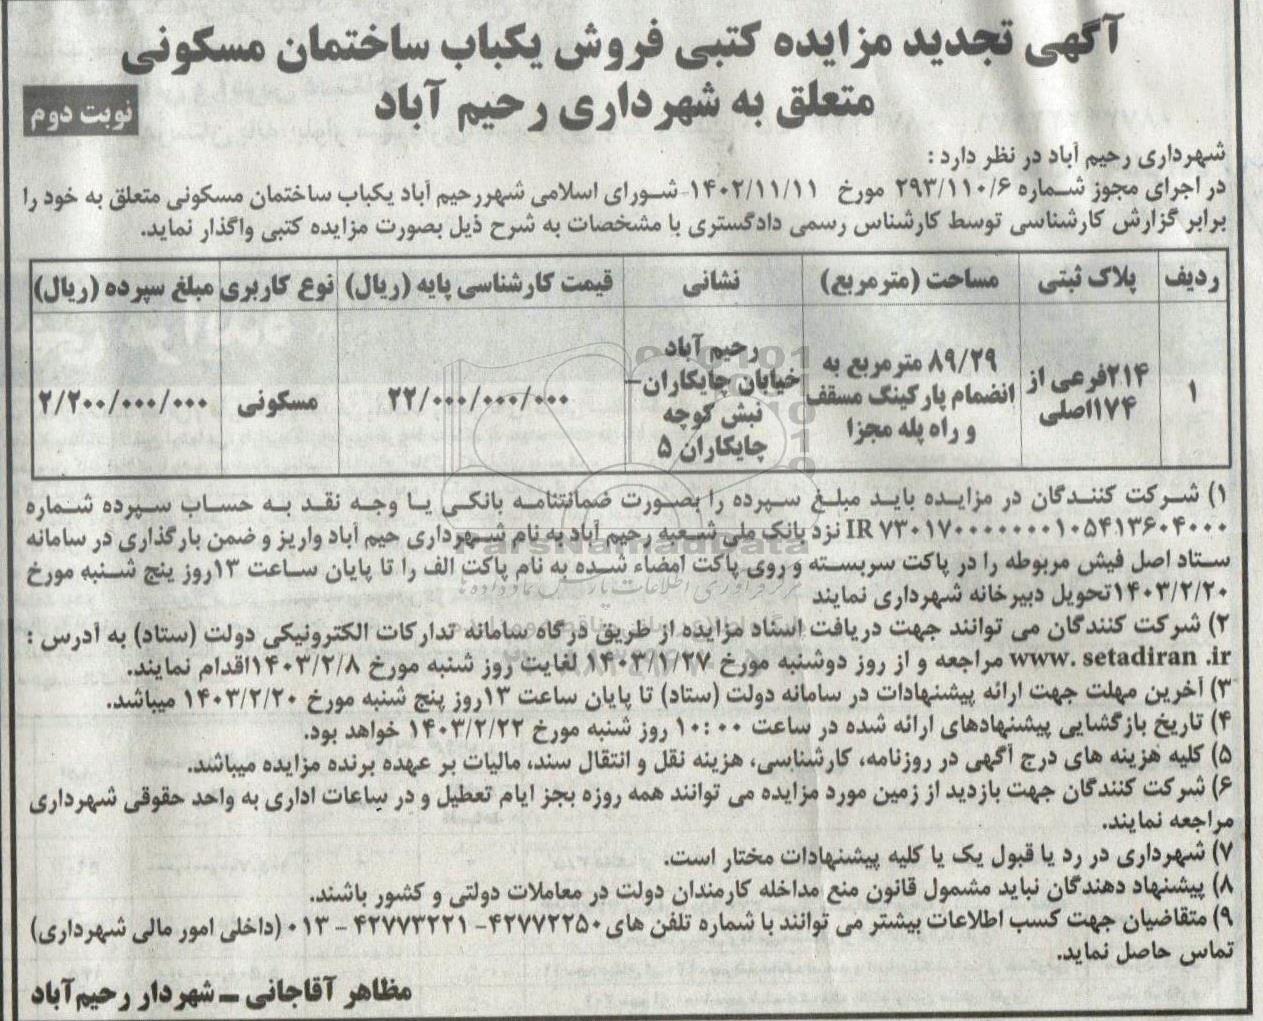 آگهی تجدید مزایده کتبی فروش یکباب ساختمان مسکونی
متعلق به شهرداری رحیم آباد
نوبت دوم
شهرداری رحیم آباد در نظر دارد :
در اجرای مجوز شماره ۲۹۳/۱۱۰/۶ مورخ ۱۴۰۲/۱۱/۱۱- شورای اسلامی شهررحیم آباد یکباب ساختمان مسکونی متعلق به خود را
برابر گزارش کارشناسی توسط کارشناس رسمی دادگستری با مشخصات به شرح ذیل بصورت مزایده کتبی واگذار نماید.
ردیف پلاک ثبتی مساحت (مترمربع) نشانی قیمت کارشناسی پایه (ریال) نوع کاربری مبلغ سپرده (ریال)
۱
۲۱۴فرعی از
۱۷۴اصلی
۸۹/۲۹ مترمربع به
انضمام پارکینگ مسقف
و راه پله مجزا
رحیم آباد
خیابان چایکاران–
نبش کوچه
چایکاران ۵
۲۲/۰۰۰/۰۰۰/۰۰۰
مسکونی
۲/۲۰۰/۰۰۰/۰۰۰
۱) شرکت کنندگان در مزایده باید مبلغ سپرده را بصورت ضمانتنامه بانکی یا وجه نقد به حساب سپرده شماره
IR ۷۳۰۱۷۰۰۰۰۰۰۰۰۱۰۵۴۱۳۶۰۴۰۰۰ نزد بانک ملی شعبه رحیم آباد به نام شهرداری حیم آباد واریز و ضمن بارگذاری در سامانه
ستاد اصل فیش مربوطه را در پاکت سربسته و روی پاکت امضاء شده به نام پاکت الف را تا پایان ساعت ۱۳روز پنج شنبه مورخ
۱۴۰۳/۲/۲۰تحویل دبیرخانه شهرداری نمایند
۲) شرکت کنندگان می توانند جهت دریافت اسناد مزایده از طریق درگاه سامانه تدارکات الکترونیکی دولت (ستاد) به آدرس :
www. setadiran .ir مراجعه و از روز دوشنبه مورخ ۱۴۰۳/۱/۲۷ لغایت روز شنبه مورخ ۱۴۰۳/۲/۸اقدام نمایند.
۳) آخرین مهلت جهت ارائه پیشنهادات در سامانه دولت (ستاد) تا پایان ساعت ۱۳روز پنج شنبه مورخ ۱۴۰۳/۲/۲۰ میباشد.
۴) تاریخ بازگشایی پیشنهادهای ارائه شده در ساعت ۱۰:۰۰ روز شنبه مورخ ۱۴۰۳/۲/۲۲ خواهد بود.
۵) کلیه هزینه های درج آگهی در روزنامه، کارشناسی، هزینه نقل و انتقال سند، مالیات بر عهده برنده مزایده میباشد.
۶) شرکت کنندگان جهت بازدید از زمین مورد مزایده می توانند همه روزه بجز ایام تعطیل و در ساعات اداری به واحد حقوقی شهرداری
مراجعه نمایند.
۷) شهرداری در رد یا قبول یک یا کلیه پیشنهادات مختار است.
۸) پیشنهاد دهندگان نباید مشمول قانون منع مداخله کارمندان دولت در معاملات دولتی و کشور باشند.
۹) متقاضیان جهت کسب اطلاعات بیشتر می توانند با شماره تلفن های ۴۲۷۷۲۲۵۰- ۴۲۷۷۳۲۲۱ - ۰۱۳ (داخلی امور مالی شهرداری)
تماس حاصل نماید.
مظاهر آقاجانی – شهردار رحیم‌آباد
ParsNamadData